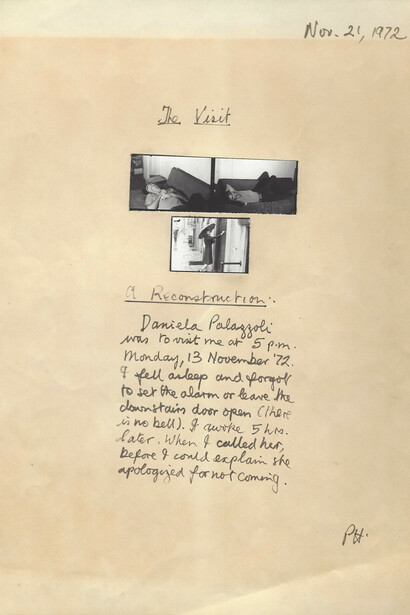 Nov. 21, 1972
The Visit
A Reconstruction:
Daniela Palazzoli
was to visit me at 5 p.m.
Monday, 13 November '72.
I fell asleep and forgot
to set the alarm or leave the
downstairs door open (there
is no bell). I woke 5 hrs.
later. When I called her,
before I could explain she
apologized for not coming.
PH.